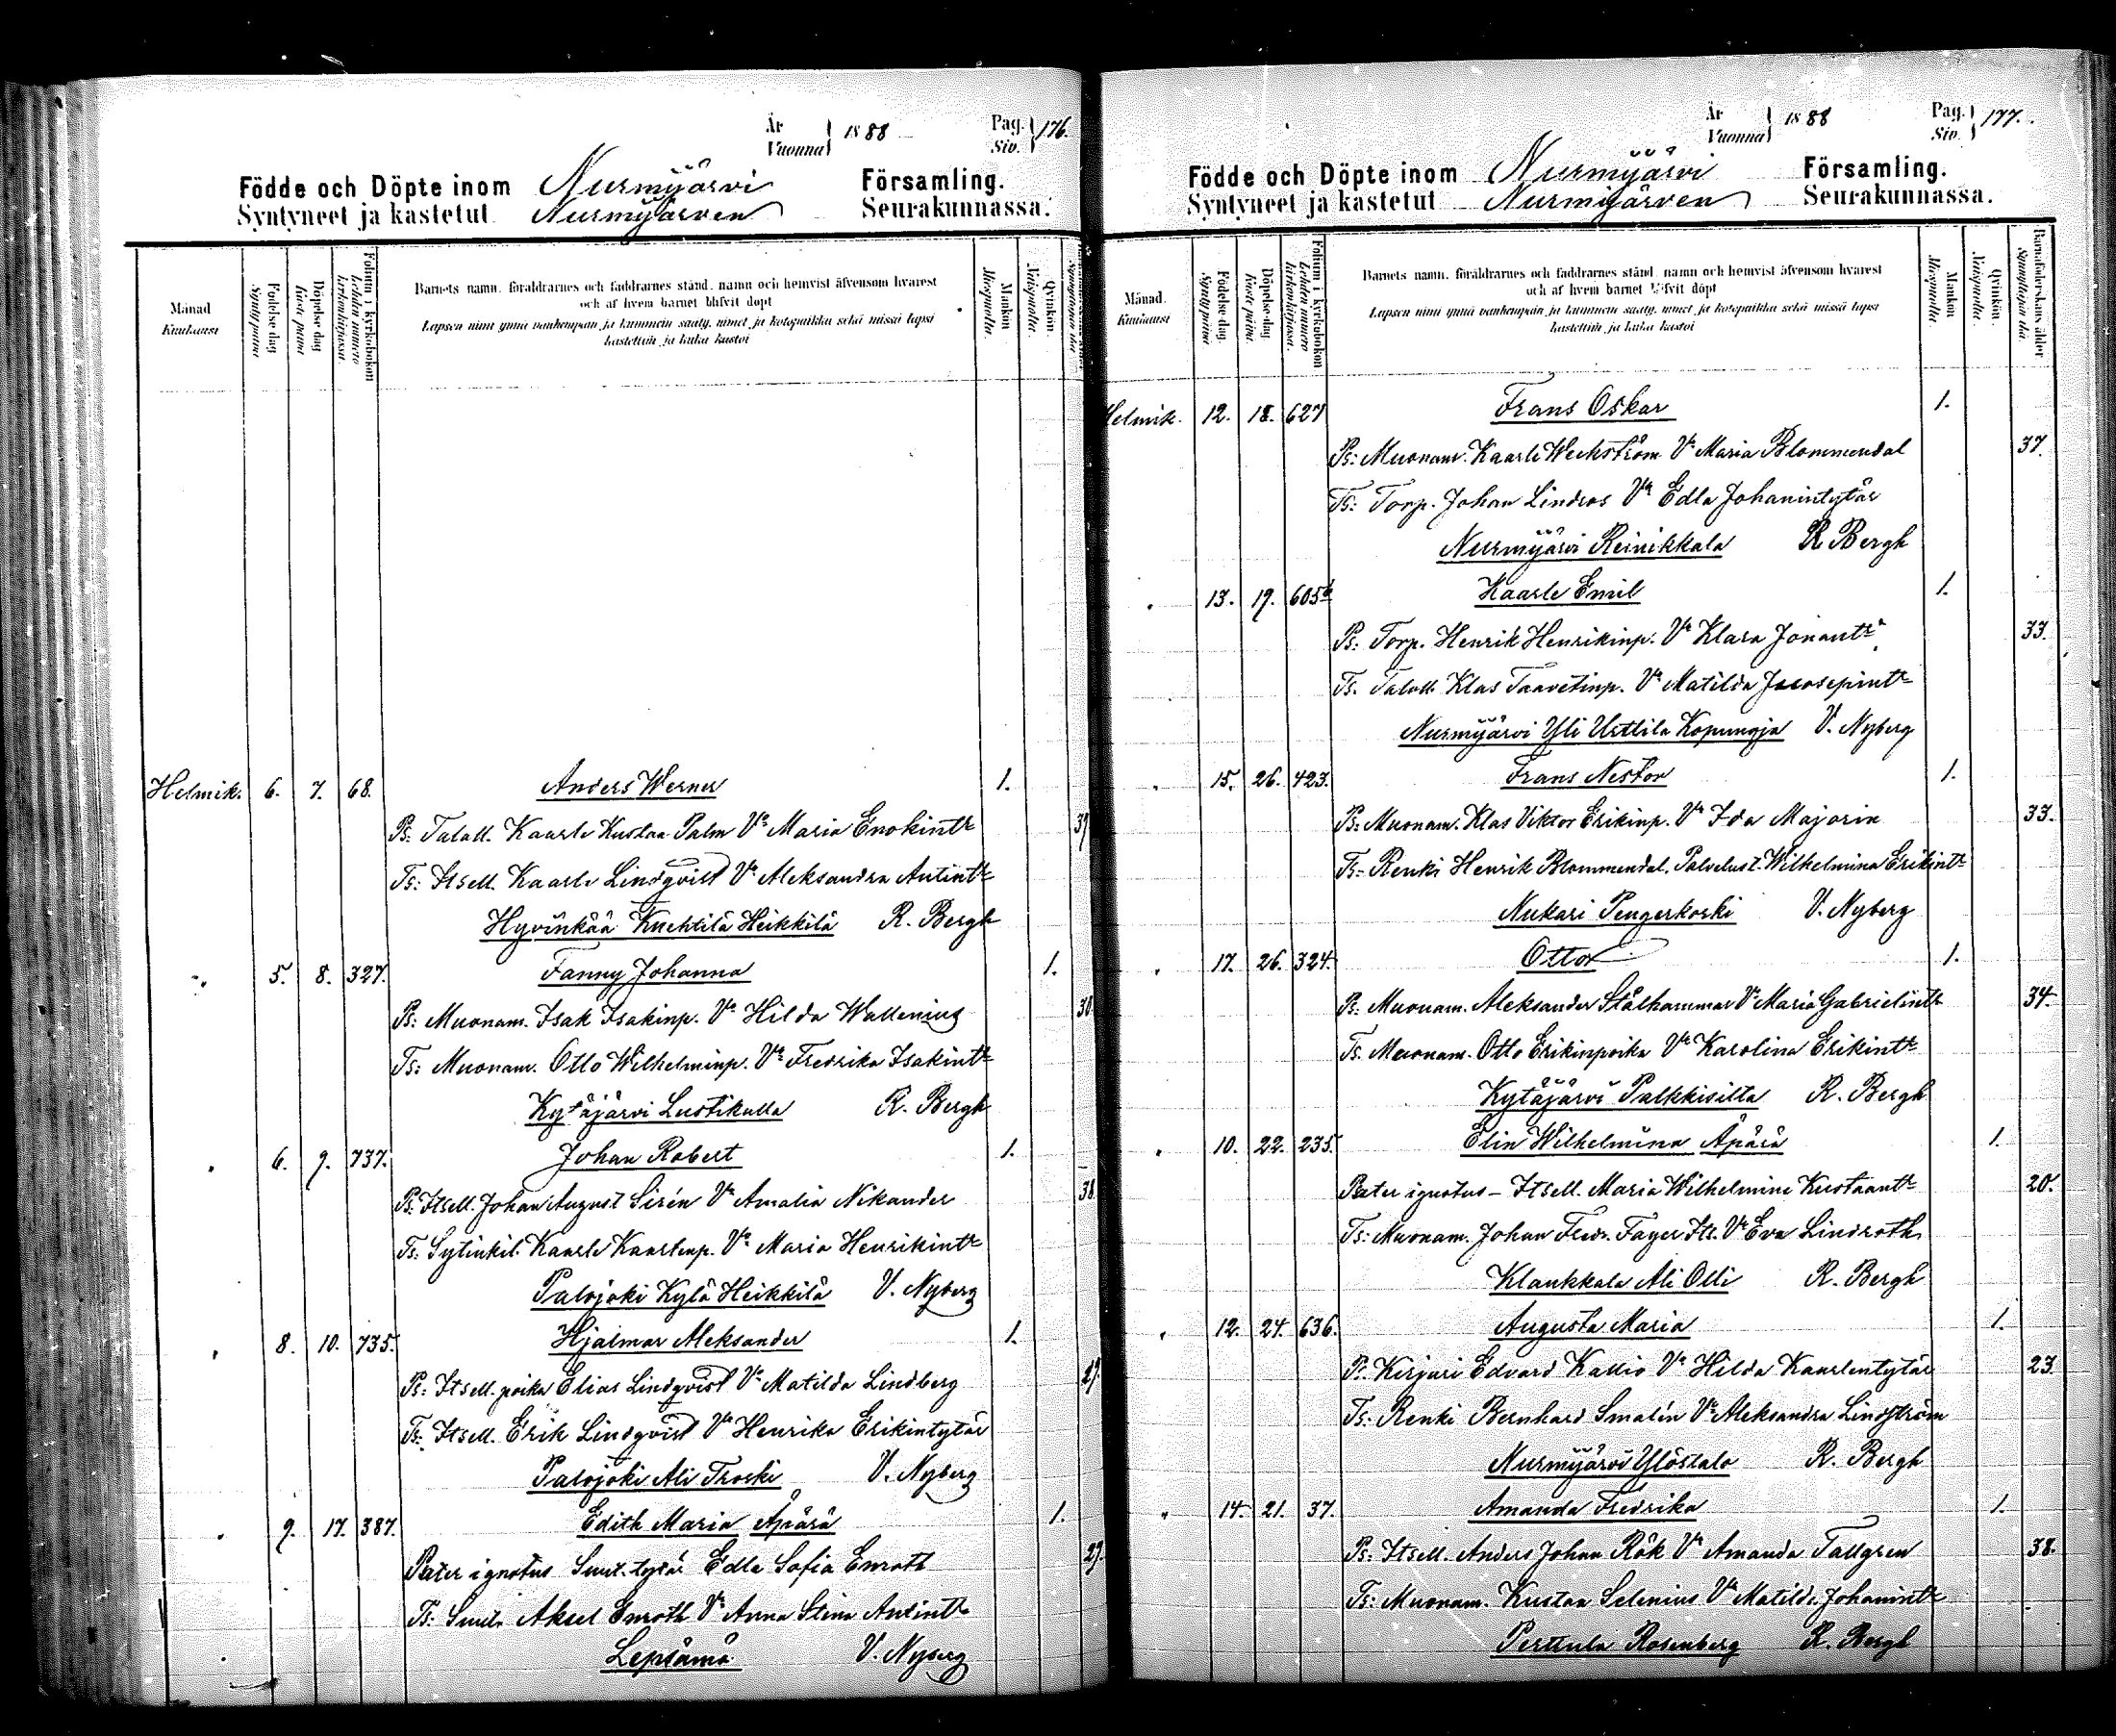 År
Vuonna } 1888
Pag.
Siv. } 176.
Födde och Döpte inom Nurmijärvi Församling.
Syntyneet ja kastetut Nurmijärven Seurakunnassa.
Månad Kuukausi
Födelse dag Syntymäpäivä
Döpelse dag Kaste päivä
Folium i kyrkobokon Lehden numero kirkonkirjassa.
Barnets namn, föräldrarnes och faddrarnes stånd, namn och hemvist äfvensom hvarest
och af hvem barnet blifvit döpt
Lapsen nimi ynnä vanhempain ja kummein sääty, nimet ja kotopaikka sekä missä lapsi
kastettiin ja kuka kastoi
Mankön Miespuolta.
Qvinkön. Naispuolta.
Helmik. 6. 7. 68. Anders Werner 1.
Ps: Taloll. Kaarle Kustaa Palm Vo Maria Enokintr 39
Ts: Itsell. Kaarle Lindqvist Vo Aleksandra Antintr
Hyvinkää Kuchtilä Heikkilä R. Bergh
" 5. 8. 327. Fanny Johanna 1.
Ps: Muonam. Isak Isakinp. Vo Hilda Wallenius 30.
Ts: Muonam. Otto Wilhelminp. Vo Fredrika Isakintr
Kytäjärvi Lustikulla R. Bergh
" 6. 9. 737. Johan Robert 1.
Ps: Itsell. Johan August Sirén Vo Amalia Nikander 38
Ts: Sytinkil. Kaarle Kaarlenp. Vo Maria Henrikintr
Palojoki Kylä Heikkilä V. Nyberg
" 8. 10. 735. Hjalmar Aleksander 1.
Ps: Itsell. poika Elias Lindqvist Vo Matilda Lindberg 29.
Ts: Itsell. Erik Lindqvist Vo Henrika Erikintytär
Palojoki Ali Troski V. Nyberg
" 9. 17. 387. Edith Maria Äpärä 1.
Pater ignotus Suut. tytär Edla Sofia Enroth 29.
Ts: Suut. Aksel Enroth Vo Anna Stina Antintr
Lepsämä V. Nyberg
År
Vuonna } 1888
Pag.
Siv. } 177.
Födde och Döpte inom Nurmijärvi Församling.
Syntyneet ja kastetut Nurmijärven Seurakunnassa.
Månad. Kuukausi
Födelse dag. Syntymäpäivä
Döpelse dag. Kaste päivä.
Folium i kyrkobokon Lehden numero kirkonkirjassa.
Barnets namn, föräldrarnes och faddrarnes stånd, namn och hemvist äfvensom hvarest
och af hvem barnet blifvit döpt
Lapsen nimi ynnä vanhempain ja kummein sääty, nimet ja kotopaikka sekä missä lapsi
kastettiin ja kuka kastoi
Mankön Miespuolta
Qvinkön. Naispuolta.
Barnaföderskans ålder Synnyttäjän ikä.
Helmik. 12. 18. 627 Frans Oskar 1.
Ps: Muonam. Kaarle Weckström Vo Maria Blommendal 37.
Ts: Torp. Johan Lindros Vo Edla Johanintytär
Nurmijärvi Reinikkala R Bergh
" 13. 19. 605 Kaarle Emil 1.
Ps: Torp. Henrik Henrikinp. Vo Klara Jonantr 33.
Ts. Taloll. Klas Taavetinp. Vo Matilda Joosepintr
Nurmijärvi Yli Uotila Kopunoja V. Nyberg
" 15. 26. 423. Frans Nestor 1.
Ps: Muonam. Klas Viktor Erikinp. Vo Ida Majorin 33.
Ts: Renki Henrik Blommendal, Palvelust. Wilhelmina Erikintr
Nukari Pengerkoski V. Nyberg
" 17. 26. 324. Otto 1.
Ps: Muonam. Aleksander Stålhammar Vo Maria Gabrielintr 34.
Ts. Muonam. Otto Erikinpoika Vo Karolina Erikintr
Kytäjärvi Palkkisilta R. Bergh
" 10. 22. 235. Elin Wilhelmina Äpärä 1.
Pater ignotus – Itsell. Maria Wilhelmina Kustaantr 20.
Ts: Muonam. Johan Fredr. Fager Its. Vo Eva Lindroth
Klaukkala Ali Olli R. Bergh
" 12. 24. 636. Augusta Maria 1.
Ps. Kirjuri Edvard Kallio Vo Hilda Kaarlentytär 23.
Ts: Renki Bernhard Smalén Vo Aleksandra Lindström
Nurmijärvi Ylöstalo R. Bergh
" 14. 21. 37. Amanda Fredrika 1.
Ps: Itsell. Anders Johan Rök Vo Amanda Tallgren 38.
Ts: Muonam. Kustaa Selenius Vo Matilda Johanintr
Perttula Rosenberg R. Bergh